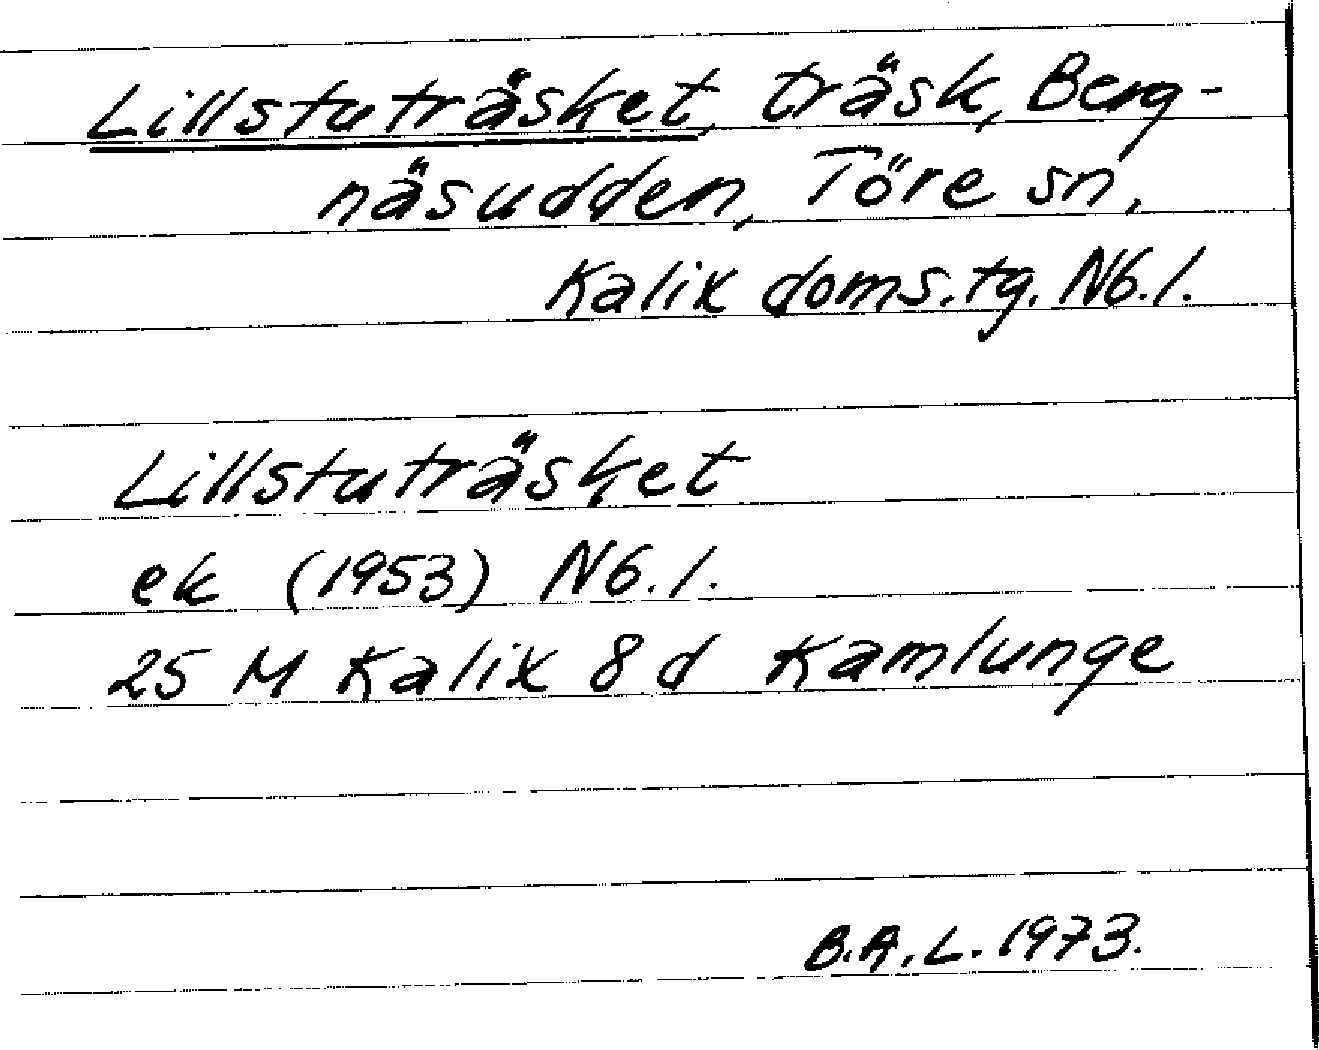 Lillstuträsket, träsk, Berg-
näsudden, Töre sn,
Kalix doms.tg. Nb.l.
Lillstuträsket
ek (1953) Nb.l.
25 M Kalix 8 d Kamlunge
B.A.L. 1973.